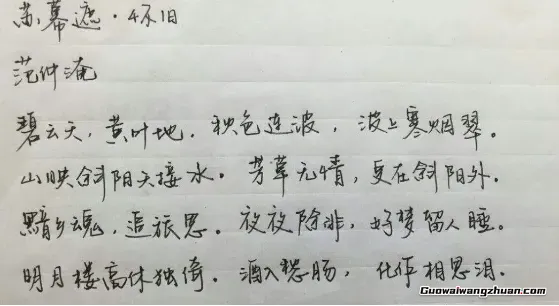 苏幕遮·怀旧
范仲淹
碧云天,黄叶地,秋色连波,波上寒烟翠。
山映斜阳天接水。芳草无情,更在斜阳外。
黯乡魂,追旅思。夜夜除非,好梦留人睡。
明月楼高休独倚。酒入愁肠,化作相思泪。
Guowaiwangzhuan.com